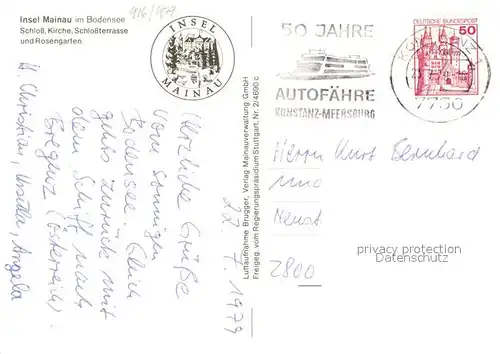 Insel Mainau im Bodensee
Schloß, Kirche, Schloßterrasse
und Rosengarten
916/187
INSEL
MAINAU
Herzliche Grüße
vom sonnigen
Bodensee. Gleich
gehts zurück mit
dem Schiff nach
Bregenz (Österreich).
H. Christian, Ursula, Angela
22.7.1979
Luftaufnahme Brugger, Verlag Mainauverwaltung GmbH
Freigeg. vom Regierungspräsidium Stuttgart, Nr. 2/4690 c
50 JAHRE
AUTOFÄHRE
KONSTANZ-MEERSBURG
KONSTANZ 1
7750
DEUTSCHE BUNDESPOST
50
Herrn Kurt Bernhard
und
2800
privacy protection
Datenschutz